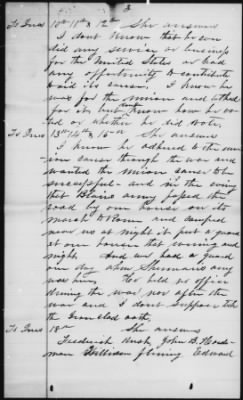 3
To Ints 10th 11th & 12th She answers
I dont know that he ever
did any service or business
for the United States or had
any opportunity to contribute
to aid its cause. I know he
was for the Union and talked
for it, but dont know how he vo-
ted or whether he did vote.
To Ints 13th 14th & 15th She answers
I know he adhered to the un-
ion cause through the war and
wanted the union cause to be
successful - and in the evening
that Blairs army passed the
road by our house on its
march to Rome and camped
near us at night it put a guard
at our house that evening and
night. And we had a guard
one day when Shermans army
was here. He held no office
during the war nor after the
war and I dont suppose took
the Iron clad oath.
To Ints 18th She answers
Frederick John B.
William Fleming Edward